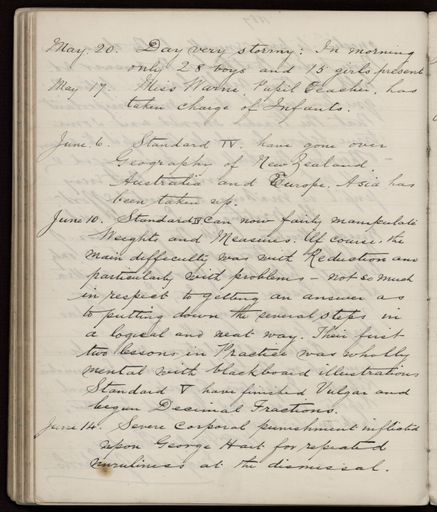 May. 20. Day very stormy: In morning
only 28 boys and 15 girls present
May 17. Miss Warne, Pupil Teacher, has
taken charge of Infants.
June. 6. Standard IV. have gone over
Geography of New Zealand
Australia and Europe. Asia has
been taken up.
June 10. Standard IV can now fairly manipulate
Weights and Measures. Of course, the
main difficulty was with Reduction and
particularly with problems - not so much
in respect to getting an answer as
to putting down the several steps in
a logical and neat way. Their first
two lessons in Practice was wholly
mental with blackboard illustrations
Standard V have finished Vulgar and
begun Decimal Fractions.
June 14. Severe corporal punishment inflicted
upon George Hait for repeated
unruliness at the dismissal.